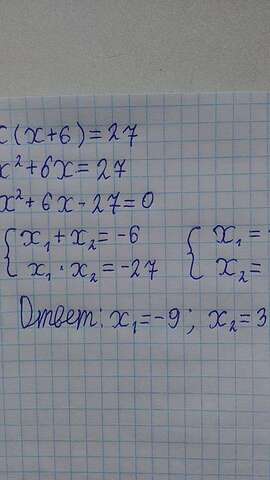 x(x+6)=27
x²+6x=27
x²+6x-27=0
{x₁+x₂=-6 {x₁=
x₁·x₂=-27 x₂=
Ответ: x₁=-9; x₂=3